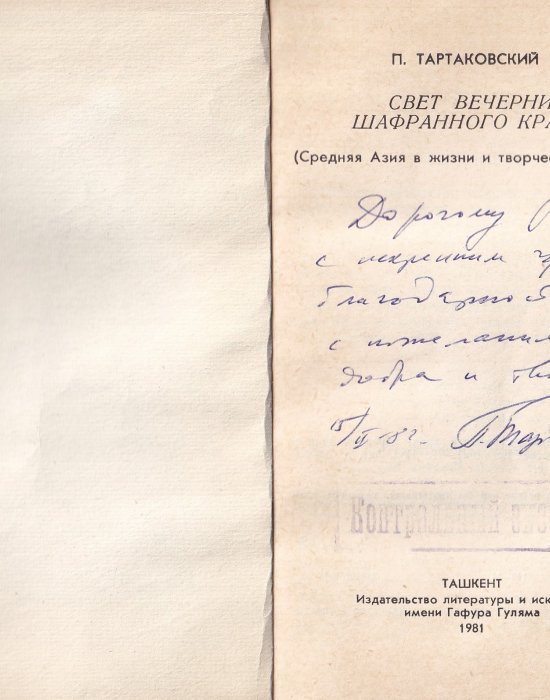 П. ТАРТАКОВСКИЙ
СВЕТ ВЕЧЕРНИ
ШАФРАННОГО КРА
(Средняя Азия в жизни и творчес
Дорогому
с искренним
благодарной
с пожелани
добра и
П. Тар
Контрольный
ТАШКЕНТ
Издательство литературы и иск
имени Гафура Гуляма
1981